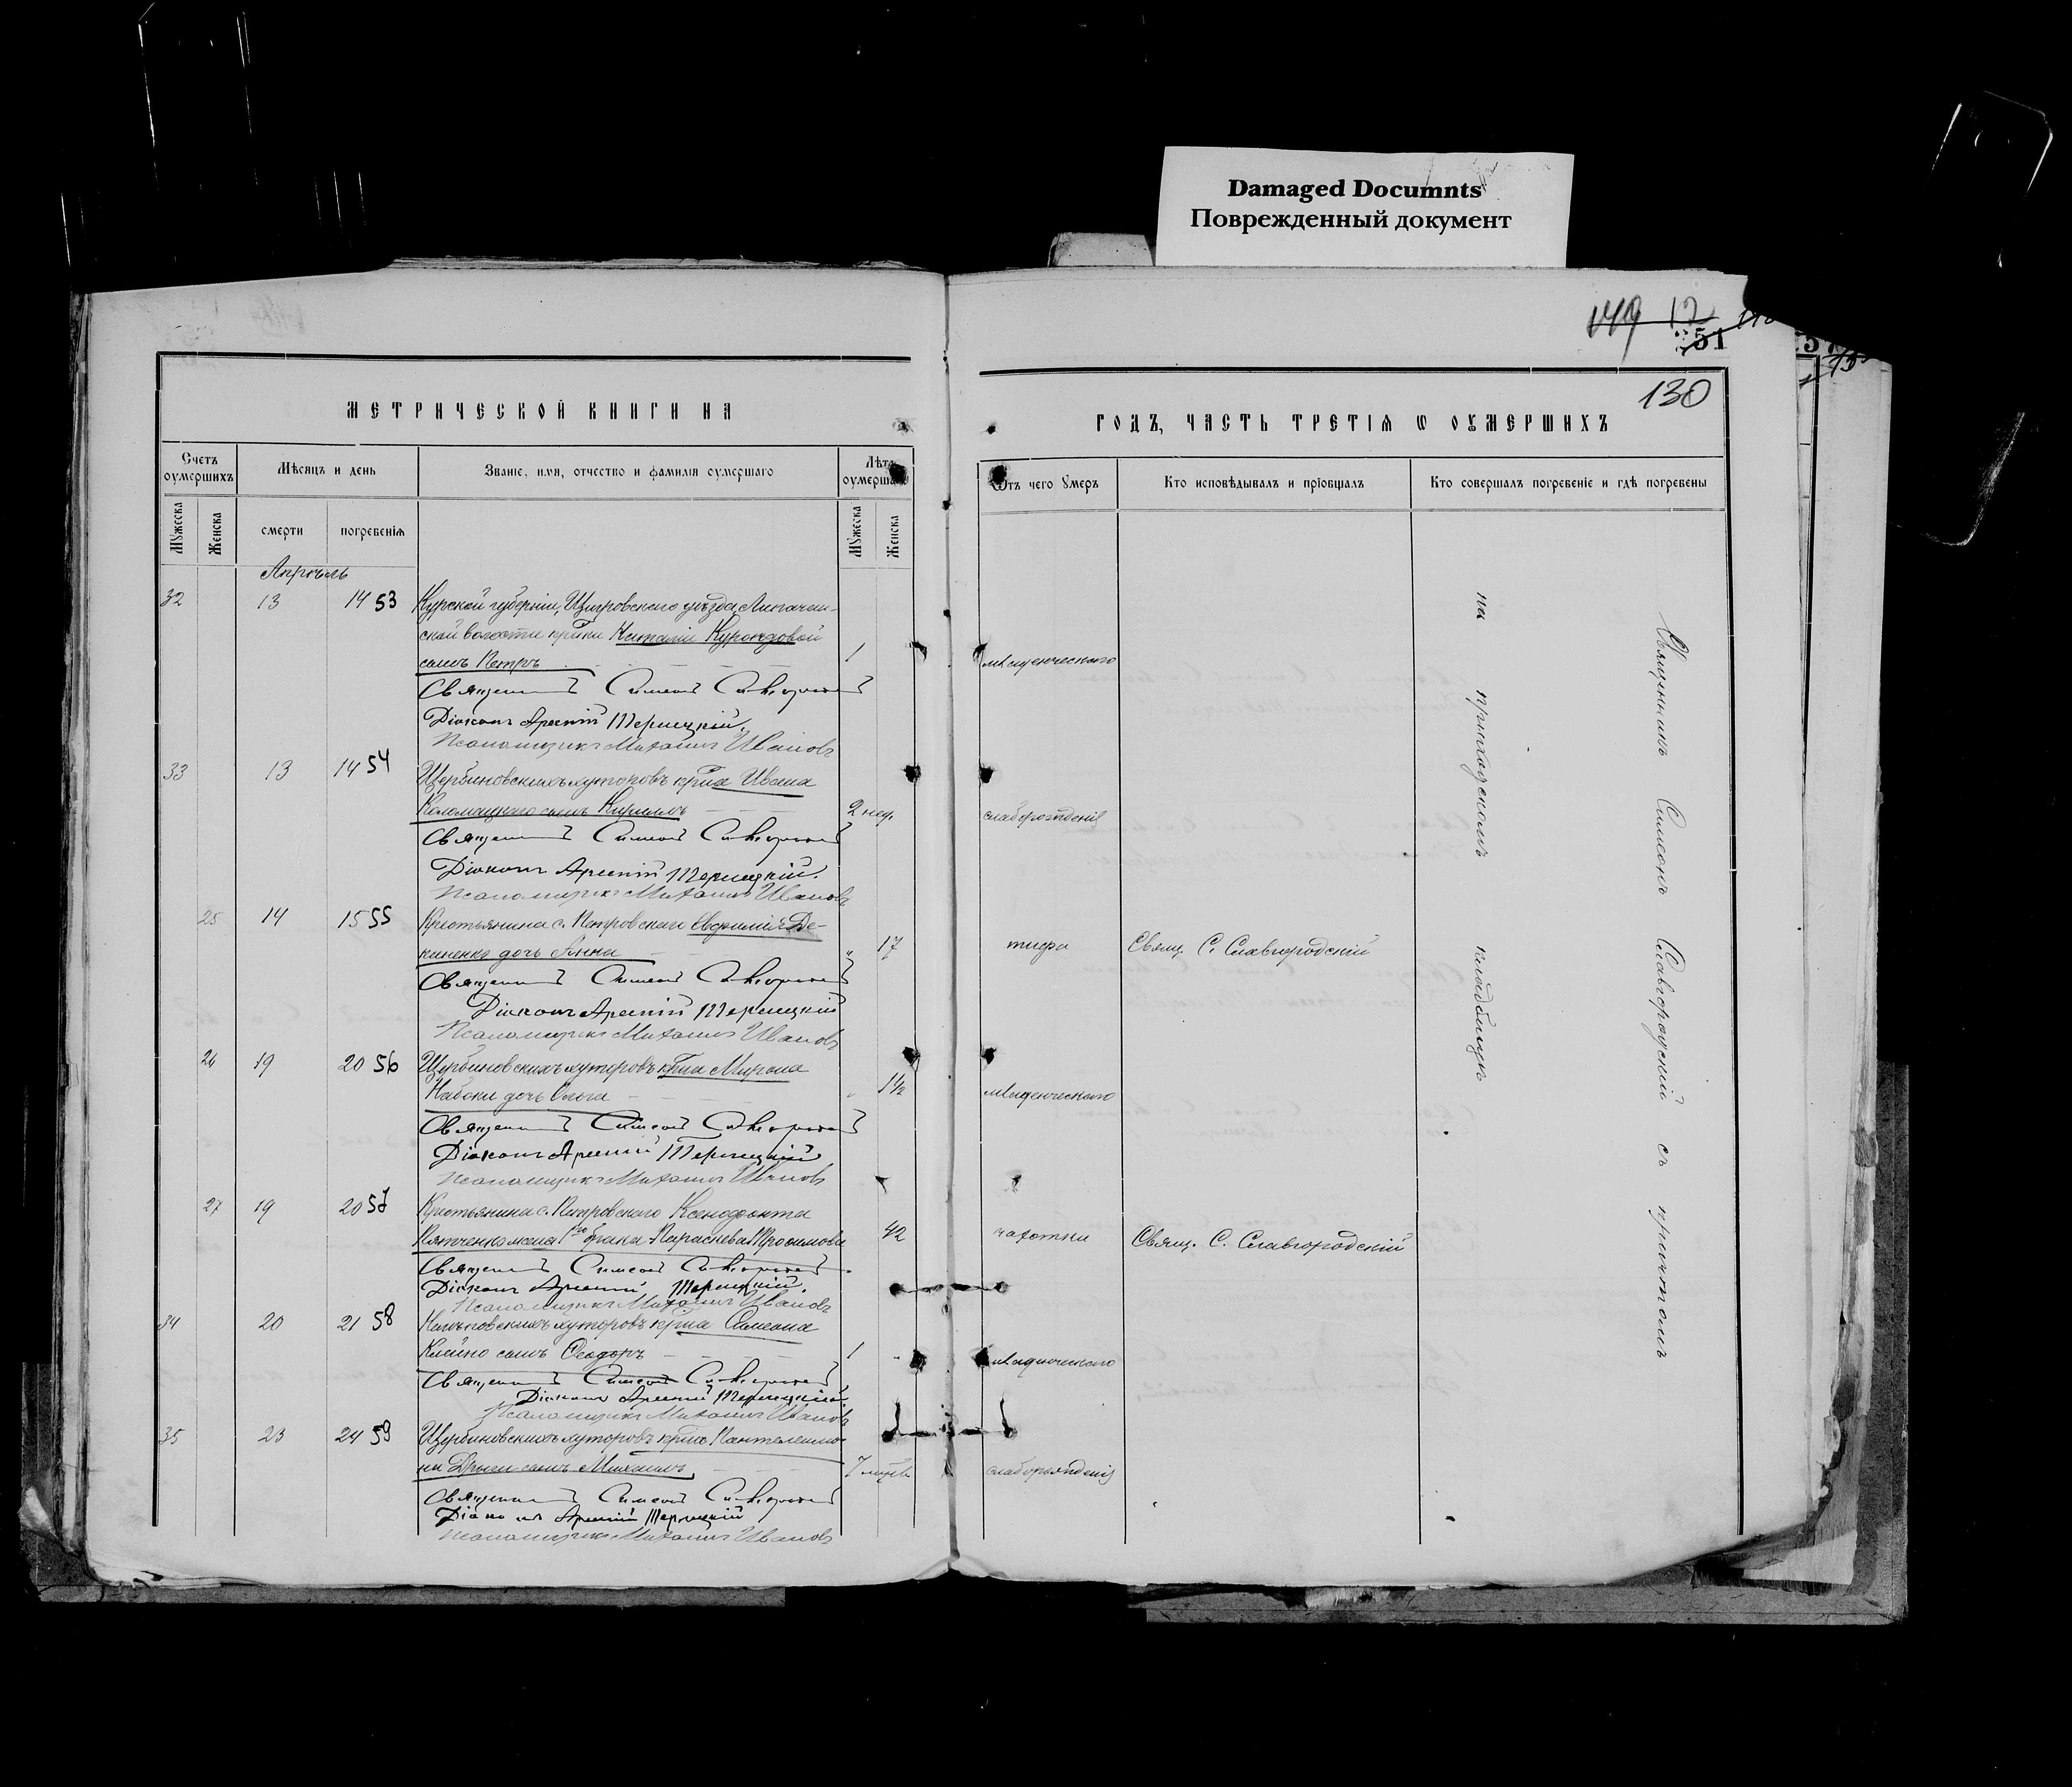 Damaged Documnts
Поврежденный документ
149 12
51
130
МЕТРИЧЕСКОЙ КНИГИ НА
ГОДЪ, ЧАСТЬ ТРЕТІѦ Ѡ ОУМЕРШИХЪ
Счетъ оумершихъ
Мѣсяцъ и день
Званіе, имя, отчество и фамилія оумершаго
Лѣта оумершаго
Ѿтъ чего умеръ
Кто исповѣдывалъ и пріобщалъ
Кто совершалъ погребеніе и гдѣ погребены
Мужеска
Женска
смерти
погребенія
Мужеска
Женска
Апрѣль
32 13 14 53 Курской губерніи, Щигровскаго уѣзда,
ской волости кр-ки Наталіи
сынъ Петръ 1 младенческаго
Священникъ Симеонъ Славгородскій
Діаконъ Арсеній Терлецкій.
Псаломщикъ Михаилъ Ивановъ
33 13 14 54 Щербиновскихъ хуторовъ кр-на Ивана
Коломацкаго сынъ Кириллъ 2 нед. слаборожденіе
Священникъ Симеонъ Славгородскій
Діаконъ Арсеній Терлецкій.
Псаломщикъ Михаилъ Ивановъ
25 14 15 55 Крестьянина с. Петровскаго Евфимія Де-
киненко дочь Анна „ 17 тифа Свящ. С. Славгородскій
Священникъ Симеонъ Славгородскій
Діаконъ Арсеній Терлецкій
Псаломщикъ Михаилъ Ивановъ
26 19 20 56 Щербиновскихъ хуторовъ кр-на Мирона
Набоки дочь Ольга „ 1½ младенческаго
Священникъ Симеонъ Славгородскій
Діаконъ Арсеній Терлецкій
Псаломщикъ Михаилъ Ивановъ
27 19 20 57 Крестьянина с. Петровскаго Ксенофонта
жена 1го брака Параскева Трофимова 42 чахотки Свящ. С. Славгородскій
Священникъ Симеонъ Славгородскій
Діаконъ Арсеній Терлецкій.
Псаломщикъ Михаилъ Ивановъ
34 20 21 58 хуторовъ кр-на Симеона
сынъ Ѳеодоръ 1 младенческаго
Священникъ Симеонъ Славгородскій
Діаконъ Арсеній Терлецкій.
Псаломщикъ Михаилъ Ивановъ
35 23 24 59 Щербиновскихъ хуторовъ кр-на Пантелеимо-
на сынъ Михаилъ 7 слаборожденіе
Священникъ Симеонъ Славгородскій
Діаконъ Арсеній Терлецкій
Псаломщикъ Михаилъ Ивановъ
Священникъ Симеонъ Славгородскій съ причтомъ
на приходскомъ кладбищѣ